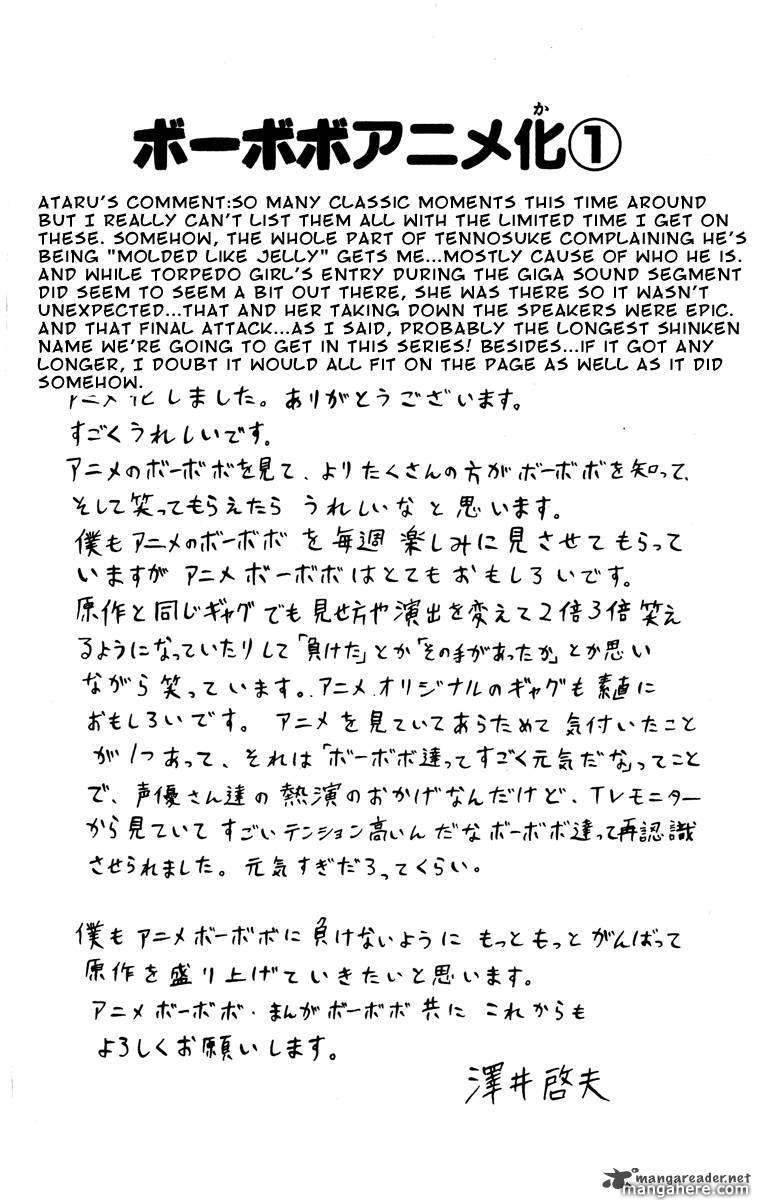 か
ボーボボアニメ化①
ATARU'S COMMENT:SO MANY CLASSIC MOMENTS THIS TIME AROUND
BUT I REALLY CAN'T LIST THEM ALL WITH THE LIMITED TIME I GET ON
THESE. SOMEHOW, THE WHOLE PART OF TENNOSUKE COMPLAINING HE'S
BEING "MOLDED LIKE JELLY" GETS ME...MOSTLY CAUSE OF WHO HE IS.
AND WHILE TORPEDO GIRL'S ENTRY DURING THE GIGA SOUND SEGMENT
DID SEEM TO SEEM A BIT OUT THERE, SHE WAS THERE SO IT WASN'T
UNEXPECTED...THAT AND HER TAKING DOWN THE SPEAKERS WERE EPIC.
AND THAT FINAL ATTACK...AS I SAID, PROBABLY THE LONGEST SHINKEN
NAME WE'RE GOING TO GET IN THIS SERIES! BESIDES...IF IT GOT ANY
LONGER, I DOUBT IT WOULD ALL FIT ON THE PAGE AS WELL AS IT DID
SOMEHOW.
しました。ありがとうございます。
すごくうれしいです。
アニメのボーボボを見て、よりたくさんの方がボーボボを知って、
そして笑ってもらえたら うれしいなと思います。
僕もアニメのボーボボを毎週楽しみに見させてもらって
いますがアニメボーボボはとてもおもしろいです。
原作と同じギャグでも見せ方や演出を変えて2倍3倍笑え
るようになっていたりして「負けた」とか「その手があったか」とか思い
ながら笑っています。アニメオリジナルのギャグも素直に
おもしろいです。アニメを見ていてあらためて気付いたこと
が1つあって、それは「ボーボボ達ってすごく元気だな」ってこと
で、声優さん達の熱演のおかげなんだけど、TVモニター
から見ていてすごいテンション高いんだなボーボボ達って再認識
させられました。元気すぎだろってくらい。
僕もアニメボーボボに負けないようにもっともっとがんばって
原作を盛り上げていきたいと思います。
アニメボーボボ・まんがボーボボ共にこれからも
よろしくお願いします。
澤井啓夫
mangareader.net
mangahere.com